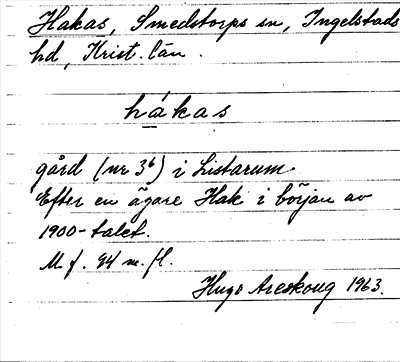 Hakas, Smedstorps sn, Ingelstads
hd, Krist. län.
hákas
gård (nr 3⁶) i Listarum.
Efter en ägare Hak i början av
1900-talet.
M f. 94 m. fl.
Hugo Areskoug 1963.